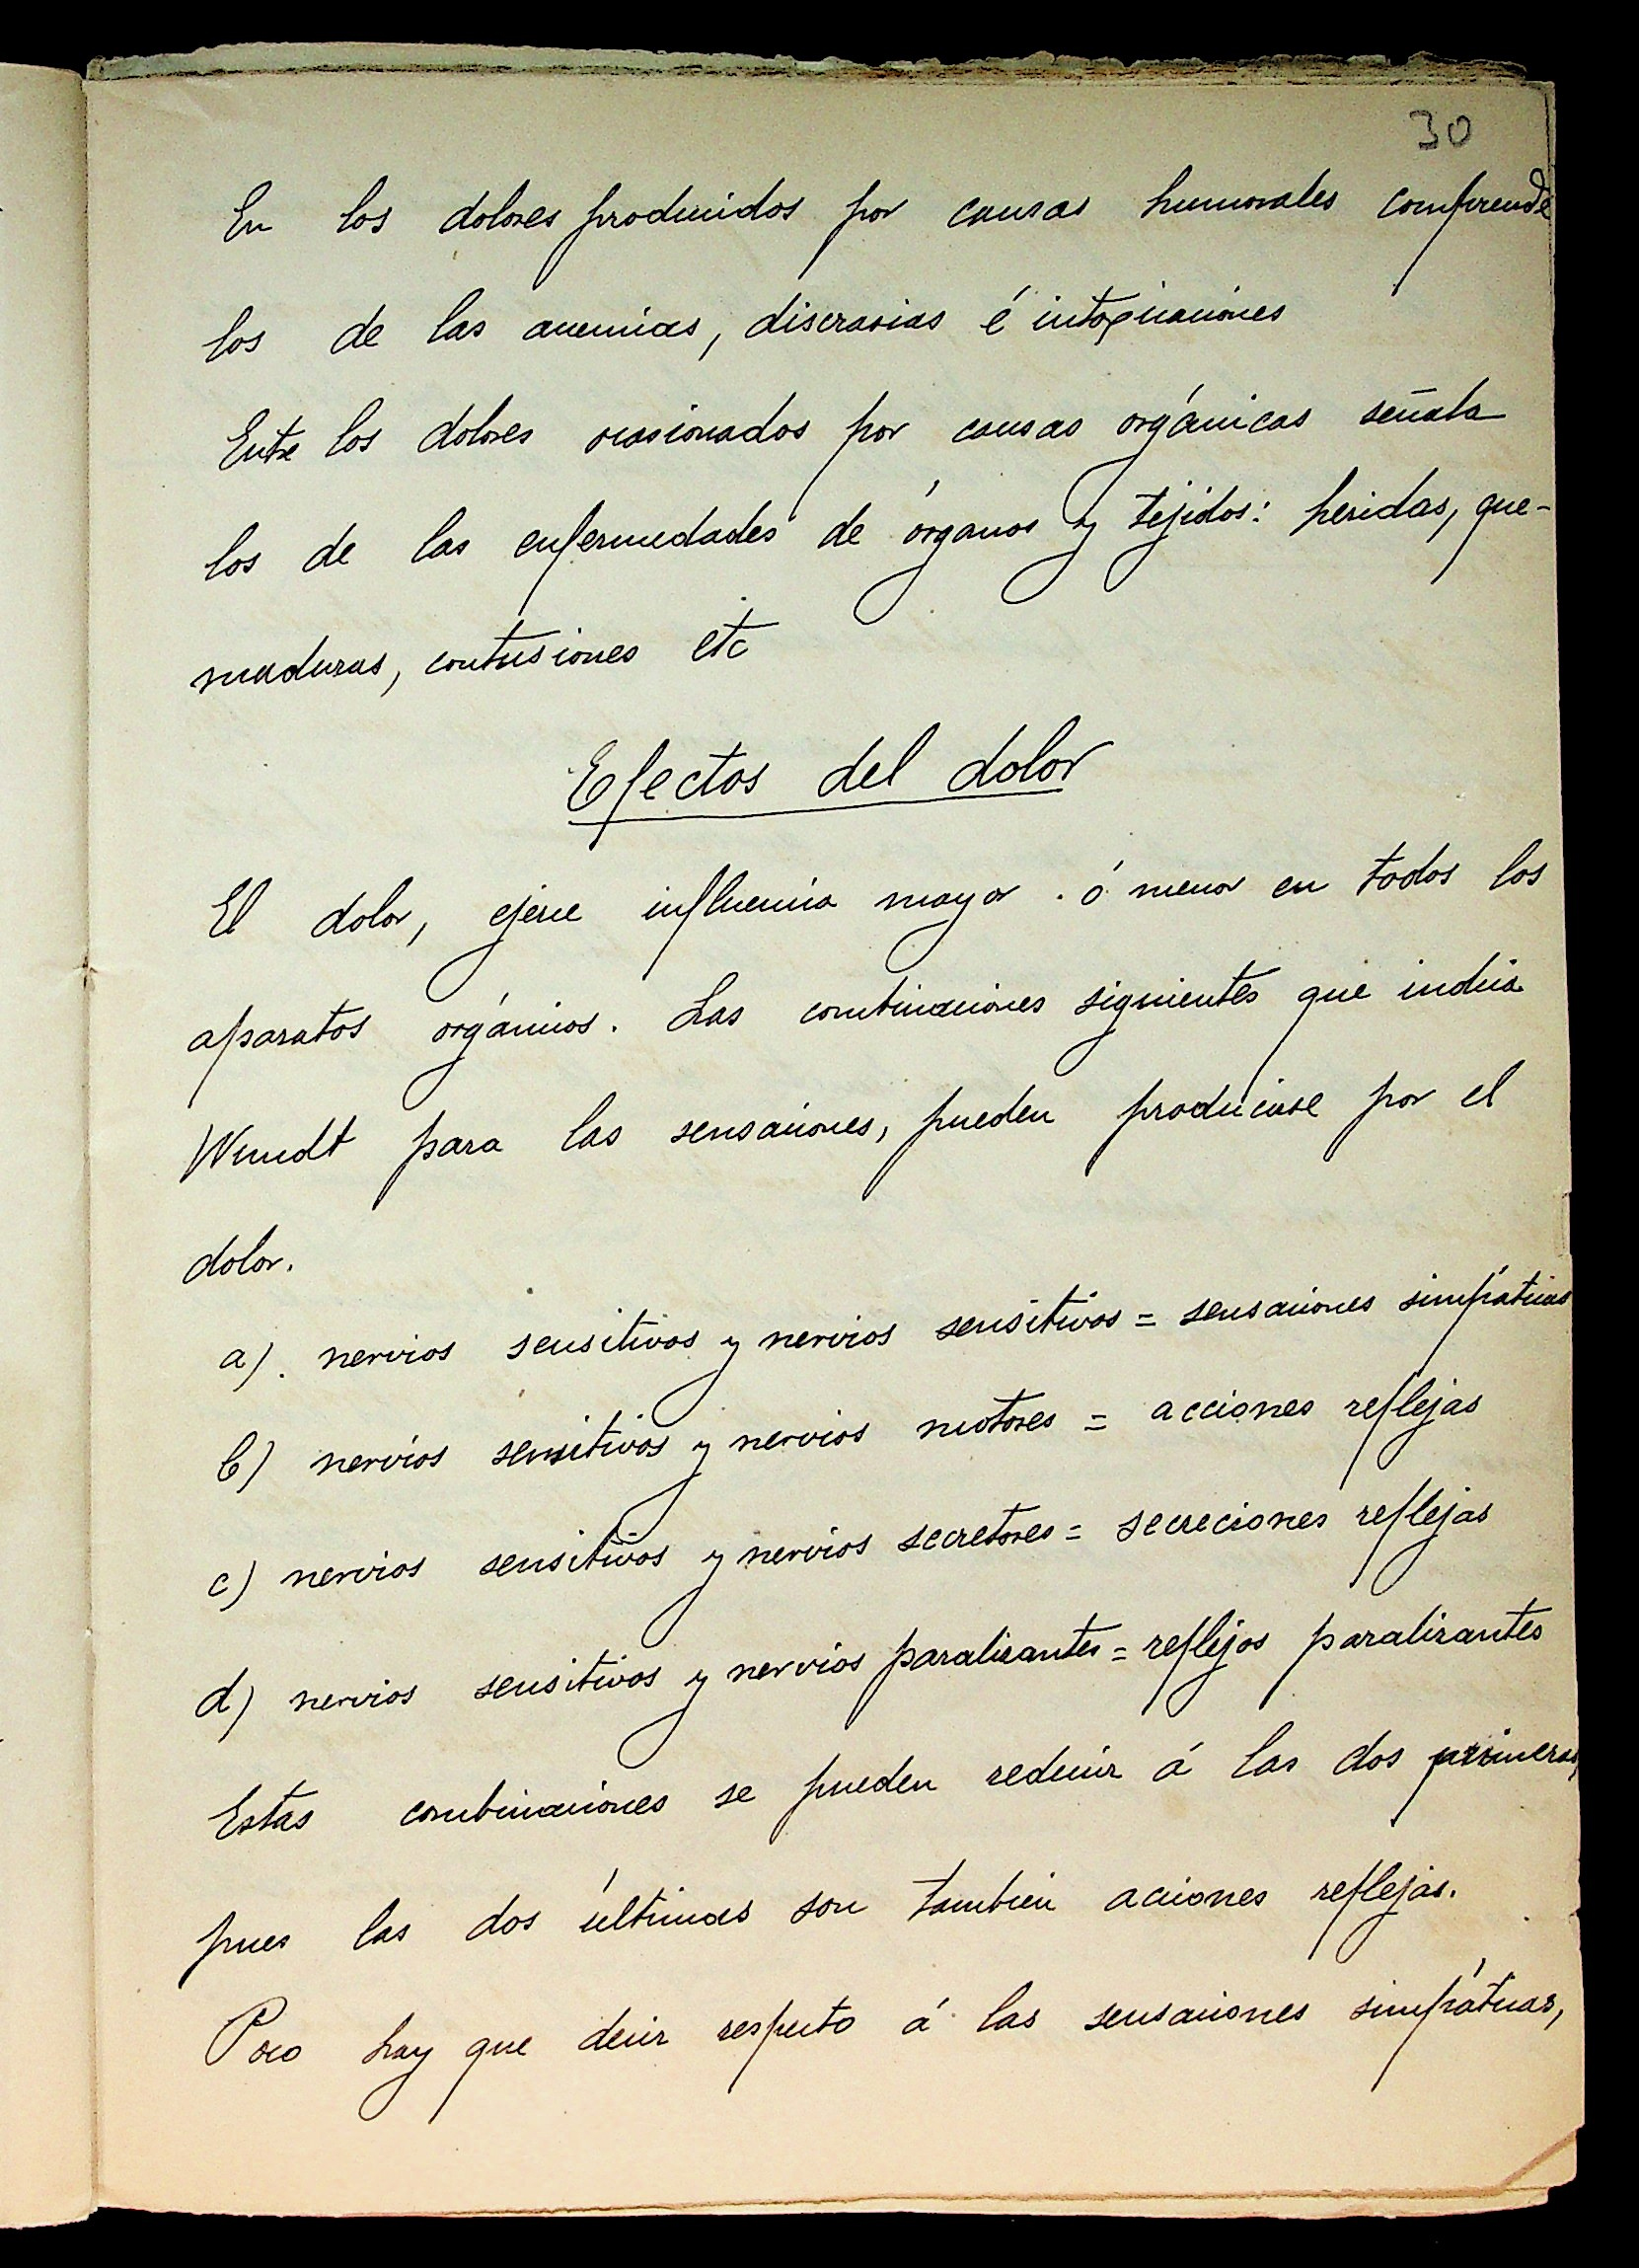 30
En los dolores producidos por causas humorales comprende
los de las anemias, discrasias é intoxicaciones
Entre los dolores ocasionados por causas orgánicas señala
los de las enfermedades de órganos y tejidos: heridas, que-
maduras, contusiones etc
Efectos del dolor
El dolor, ejerce influencia mayor ó menor en todos los
aparatos orgánicos. Las combinaciones siguientes que indica
Wundt para las sensaciones, pueden producirse por el
dolor.
a). nervios sensitivos y nervios sensitivos = sensaciones simpáticas
b) nervios sensitivos y nervios motores = acciones reflejas
c) nervios sensitivos y nervios secretores = secreciones reflejas
d) nervios sensitivos y nervios paralizantes = reflejos paralizantes
Estas combinaciones se pueden reducir á las dos primeras,
pues las dos últimas son tambien acciones reflejas.
Poco hay que decir respecto á las sensaciones simpáticas,